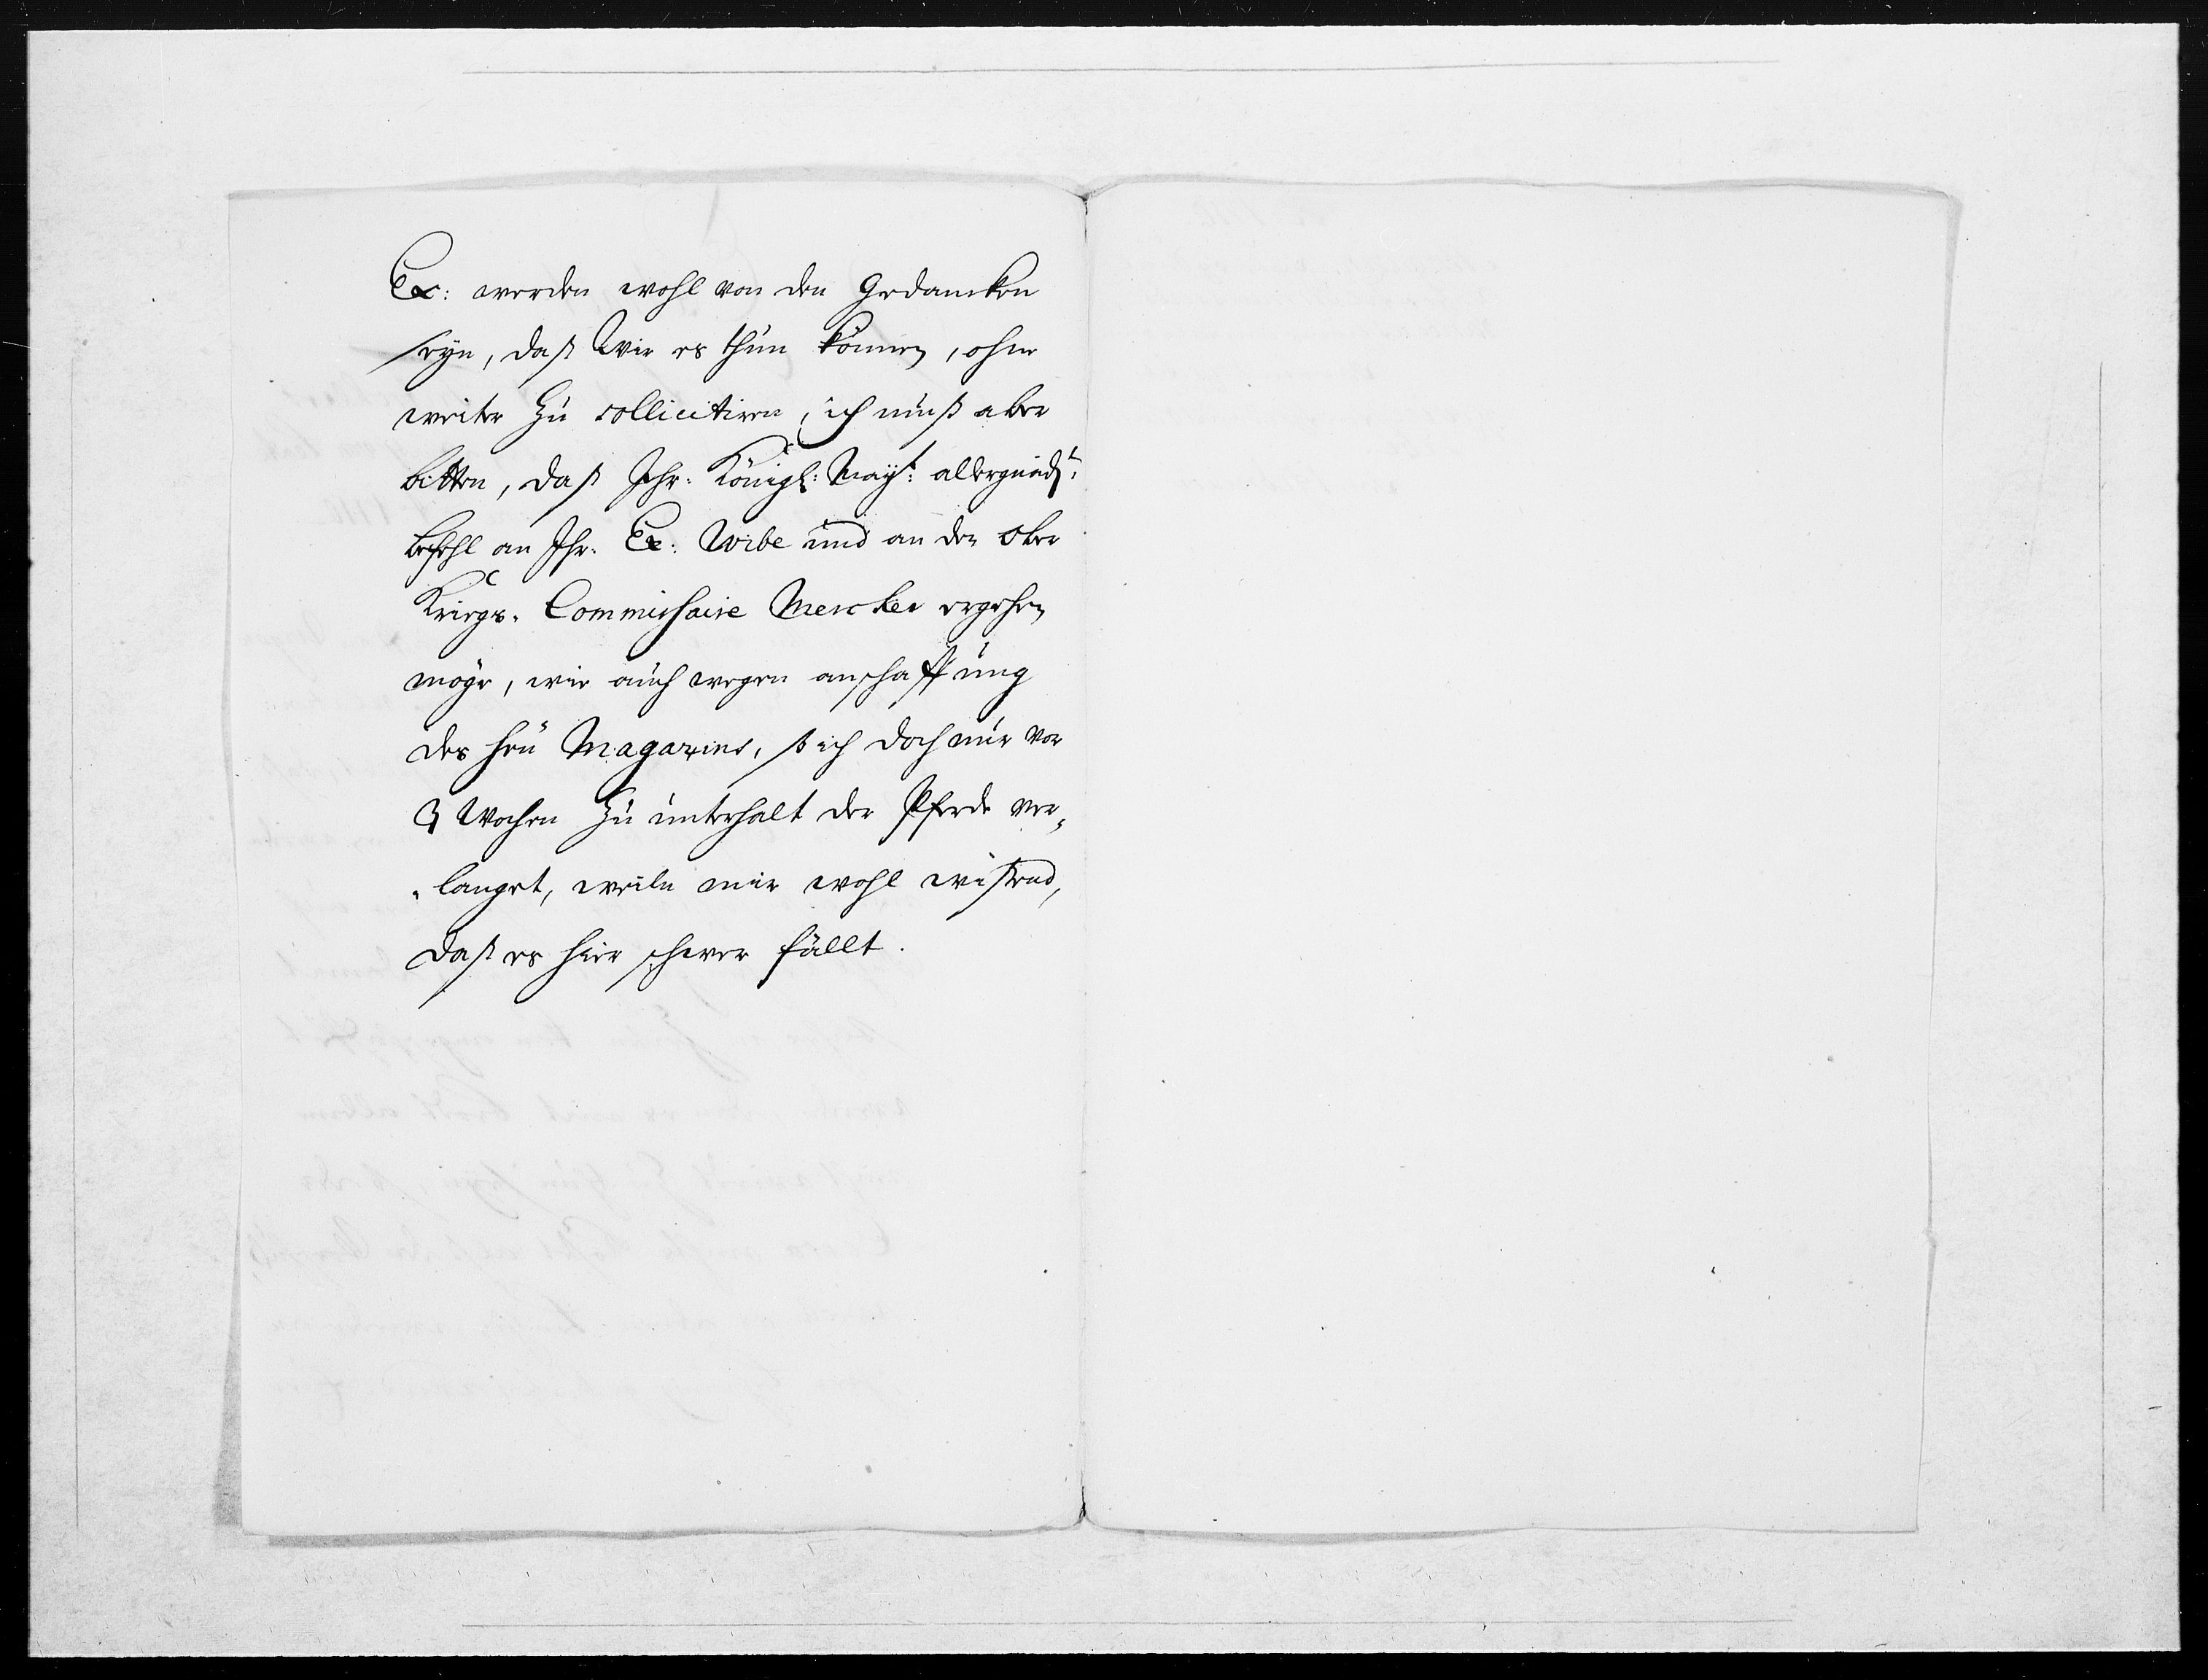 Ex: werden wohl von den Gedancken
seyn, daß Wir es thun können, ohne
weiter zu sollicitiren, ich muß aber
bitten, daß Ihr: Königl: Mayt: allergnädst:
befehl an Ihr. Ex: Wibe und an den Ober
Kriegs-Commissaire Mercker ergehen
möge, wie auch wegen anschaffung
des heu Magazins, so ich doch nur vor
3 Wochen zu unterhalt der Pferde ver-
-langet, weiln mir wohl wißend,
daß es hier schwer fällt.